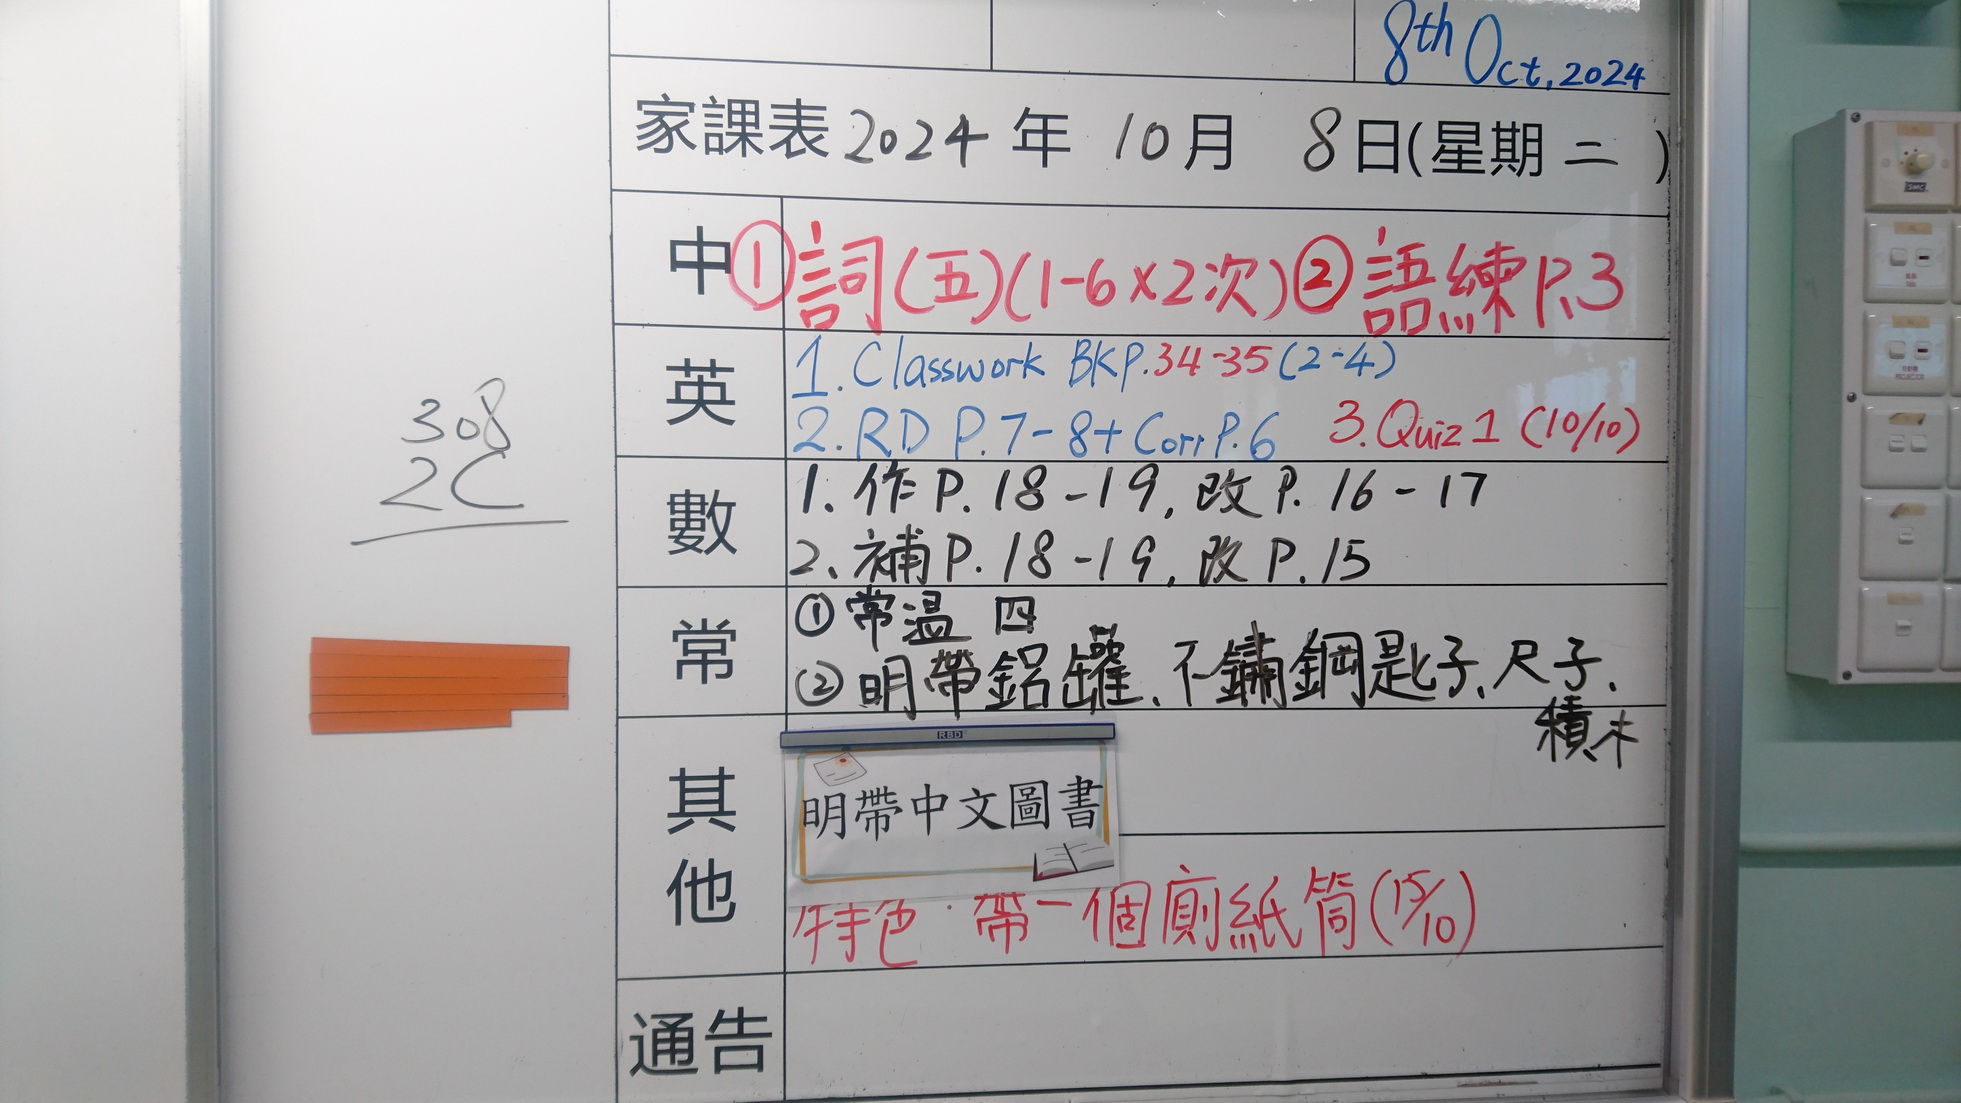 8th Oct, 2024
家課表 2024 年 10 月 8 日(星期 二 )
中 ① 詞(五)(1-6×2次) ② 語練P.3
英 1. Classwork BKP.34-35 (2-4)
2. RD P.7-8 + Corr P.6 3. Quiz 1 (10/10)
數 1. 作 P. 18-19, 改 P. 16-17
2. 補 P. 18-19, 改 P. 15
常 ① 常温 四
② 明帶鋁罐、不鏽鋼匙子、尺子、
積木
RBD
其他 明帶中文圖書
特色: 帶一個廁紙筒(15/10)
通告
308
2C
SMC
PROJECTOR